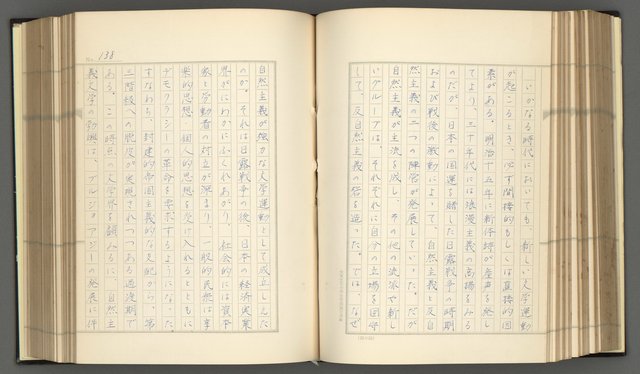 いかなる時代においても、新しい文学運動
が起こるとき、必ず間接的もしくは直接的因
素がある。明治十五年に新体詩が産声を発し
てより、三十年代には浪漫主義の高揚をみる
のだが、日本の国運を賭した日露戦争の時期
および戦後の激動によって、自然主義と反自
然主義の二つの陣営が発展していった。だが
自然主義が主流を成し、その他の流派や新し
いグループは、それぞれに自分の立場を固守
して、反自然主義の砦を造った。では、なぜ
No. 138
自然主義が強力な文学運動として成立しえた
のか。それは日露戦争の後、日本の経済実業
界がにわかにふくれあがり、社会的には資本
家と労動者の対立が深まり、一般的民衆は享
楽的思想・個人的思想を受け入れるとともに
デモクラシーの革命を要求するようになった。
すなわち、封建的帝国主義的な支配から、第
三階級への の反 が実現されつつある過渡期で
ある。この時点の文学界を顧みるに、自然主
義文学の勃興は、ブルジョアジーの発展に伴